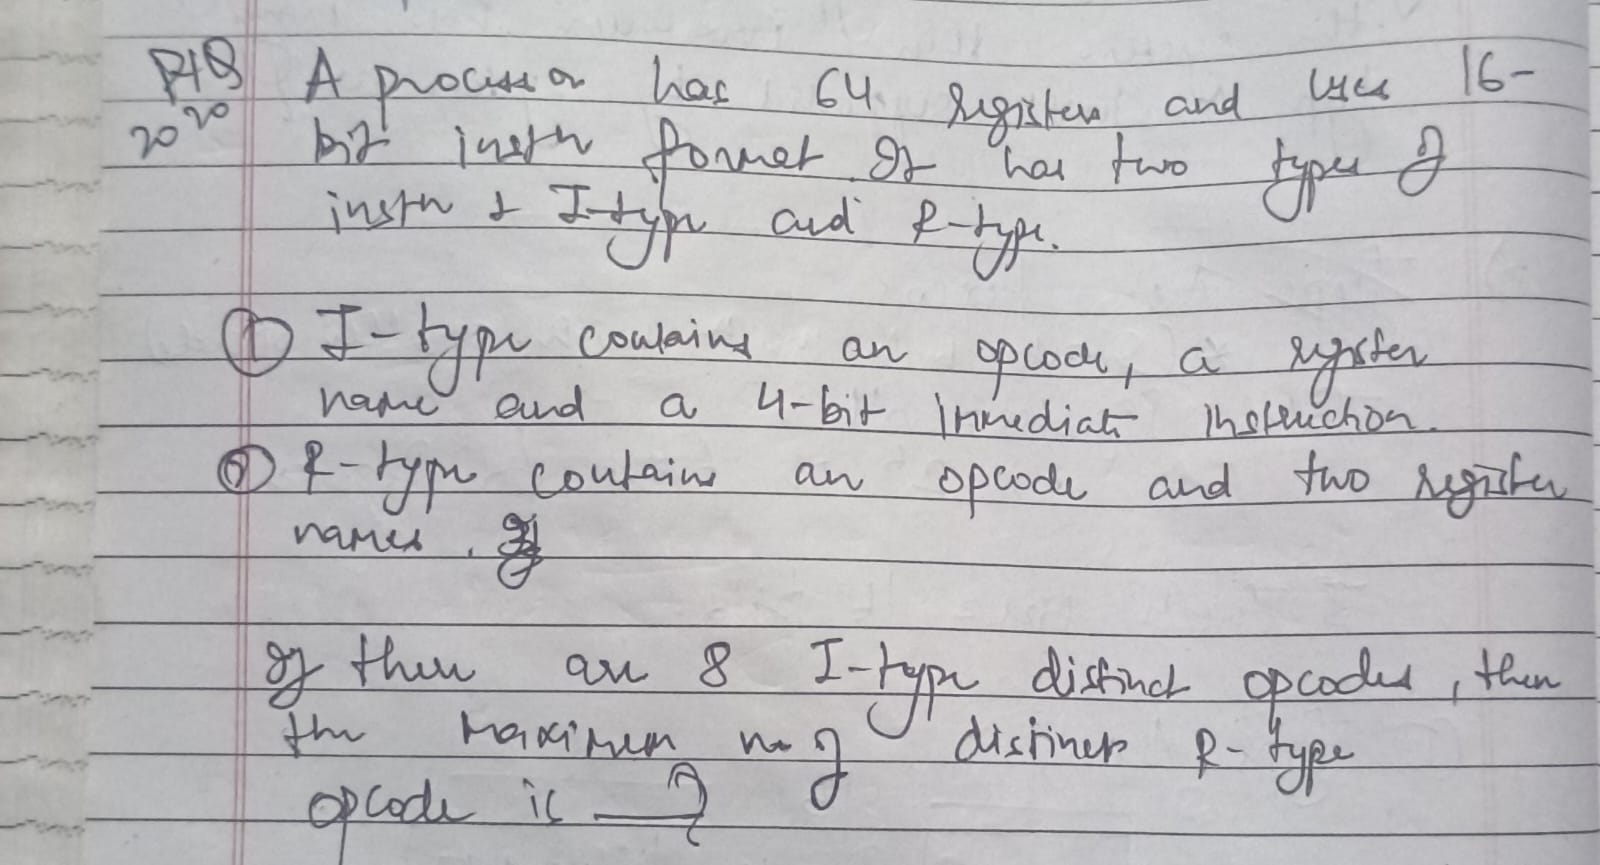 PYQ A processor has 64 registers and uses 16-
2020 bit instn format. It has two types of
instn I-type and R-type.
① I-type contains an opcode, a register
name and a 4-bit immediate instruction.
② R-type contains an opcode and two register
names.
If there are 8 I-type distinct opcodes, then
the maximum no of distinct R-type
opcode is ___?